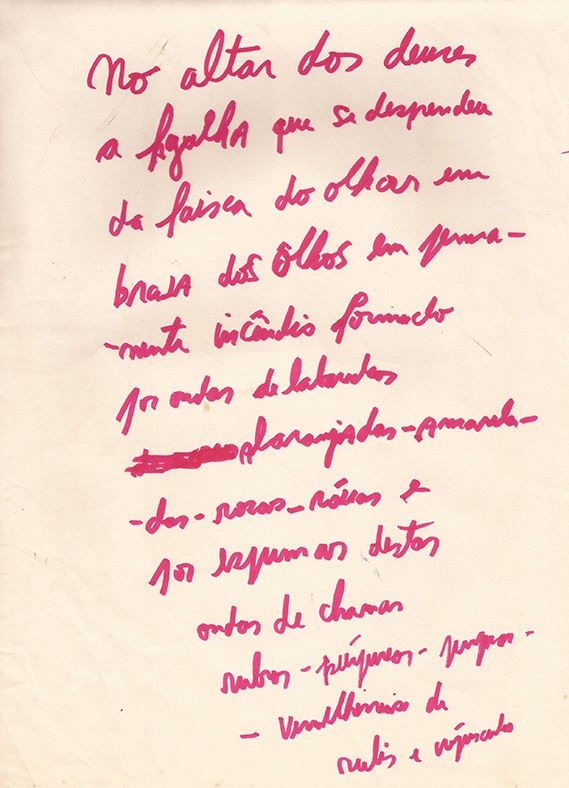 No altar dos deuses
a AgulhA que se desprendeu
da faisca do olhar em
brasA dos ôlhos em perma-
-nente incêndio formado
por ondas de labaredas
alaranjAdas-Amarela-
-das-rosas-róseas e
por espumas destas
ondas de chamas
rubras-púrpuras-
- Vermelhissias de
rubis e